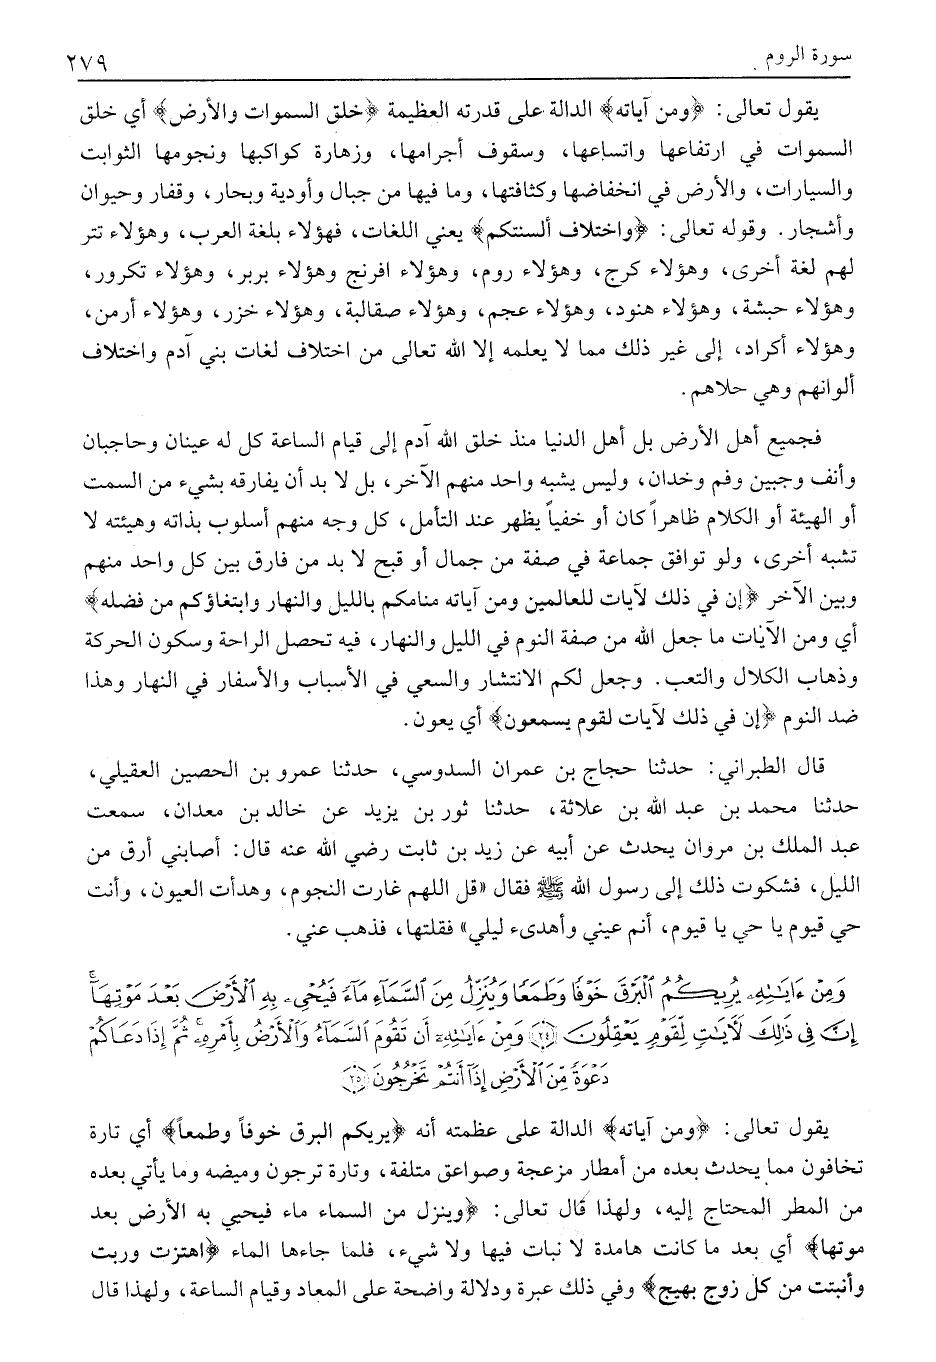 سورة الروم
٢٧٩
يقول تعالى: ﴿ومن آياته﴾ الدالة على قدرته العظيمة ﴿خلق السموات والأرض﴾ أي خلق
السموات في ارتفاعها واتساعها، وسقوف أجرامها، وزهارة كواكبها ونجومها الثوابت
والسيارات، والأرض في انخفاضها وكثافتها، وما فيها من جبال وأودية وبحار، وقفار وحيوان
وأشجار. وقوله تعالى: ﴿واختلاف ألسنتكم﴾ يعني اللغات، فهؤلاء بلغة العرب، وهؤلاء تتر
لهم لغة أخرى، وهؤلاء كرج، وهؤلاء روم، وهؤلاء افرنج وهؤلاء بربر، وهؤلاء تكرور،
وهؤلاء حبشة، وهؤلاء هنود، وهؤلاء عجم، وهؤلاء صقالبة، وهؤلاء خزر، وهؤلاء أرمن،
وهؤلاء أكراد، إلى غير ذلك مما لا يعلمه إلا الله تعالى من اختلاف لغات بني آدم واختلاف
ألوانهم وهي حلاهم.
فجميع أهل الأرض بل أهل الدنيا منذ خلق الله آدم إلى قيام الساعة كل له عينان وحاجبان
وأنف وجبين وفم وخدان، وليس يشبه واحد منهم الآخر، بل لا بد أن يفارقه بشيء من السمت
أو الهيئة أو الكلام ظاهراً كان أو خفياً يظهر عند التأمل، كل وجه منهم أسلوب بذاته وهيئته لا
تشبه أخرى، ولو توافق جماعة في صفة من جمال أو قبح لا بد من فارق بين كل واحد منهم
وبين الآخر ﴿إن في ذلك لآيات للعالمين ومن آياته منامكم بالليل والنهار وابتغاؤكم من فضله﴾
أي ومن الآيات ما جعل الله من صفة النوم في الليل والنهار، فيه تحصل الراحة وسكون الحركة
وذهاب الكلال والتعب. وجعل لكم الانتشار والسعي في الأسباب والأسفار في النهار وهذا
ضد النوم ﴿إن في ذلك لآيات لقوم يسمعون﴾ أي يعون.
قال الطبراني: حدثنا حجاج بن عمران السدوسي، حدثنا عمرو بن الحصين العقيلي،
حدثنا محمد بن عبد الله بن علاثة، حدثنا ثور بن يزيد عن خالد بن معدان، سمعت
عبد الملك بن مروان يحدث عن أبيه عن زيد بن ثابت رضي الله عنه قال: أصابني أرق من
الليل، فشكوت ذلك إلى رسول الله ﷺ فقال «قل اللهم غارت النجوم، وهدأت العيون، وأنت
حي قيوم يا حي يا قيوم، أنم عيني وأهدىء ليلي» فقلتها، فذهب عني.
وَمِنْ ءَايَـٰتِهِۦ يُرِيكُمُ ٱلْبَرْقَ خَوْفًا وَطَمَعًا وَيُنَزِّلُ مِنَ ٱلسَّمَآءِ مَآءً فَيُحْىِۦ بِهِ ٱلْأَرْضَ بَعْدَ مَوْتِهَآ ۚ
إِنَّ فِى ذَٰلِكَ لَـَٔايَـٰتٍ لِّقَوْمٍ يَعْقِلُونَ ﴿٢٤﴾ وَمِنْ ءَايَـٰتِهِۦٓ أَن تَقُومَ ٱلسَّمَآءُ وَٱلْأَرْضُ بِأَمْرِهِۦ ۚ ثُمَّ إِذَا دَعَاكُمْ
دَعْوَةً مِّنَ ٱلْأَرْضِ إِذَآ أَنتُمْ تَخْرُجُونَ ﴿٢٥﴾
يقول تعالى: ﴿ومن آياته﴾ الدالة على عظمته أنه ﴿يريكم البرق خوفاً وطمعاً﴾ أي تارة
تخافون مما يحدث بعده من أمطار مزعجة وصواعق متلفة، وتارة ترجون وميضه وما يأتي بعده
من المطر المحتاج إليه، ولهذا قال تعالى: ﴿وينزل من السماء ماء فيحيي به الأرض بعد
موتها﴾ أي بعد ما كانت هامدة لا نبات فيها ولا شيء، فلما جاءها الماء ﴿اهتزت وربت
وأنبتت من كل زوج بهيج﴾ وفي ذلك عبرة ودلالة واضحة على المعاد وقيام الساعة، ولهذا قال